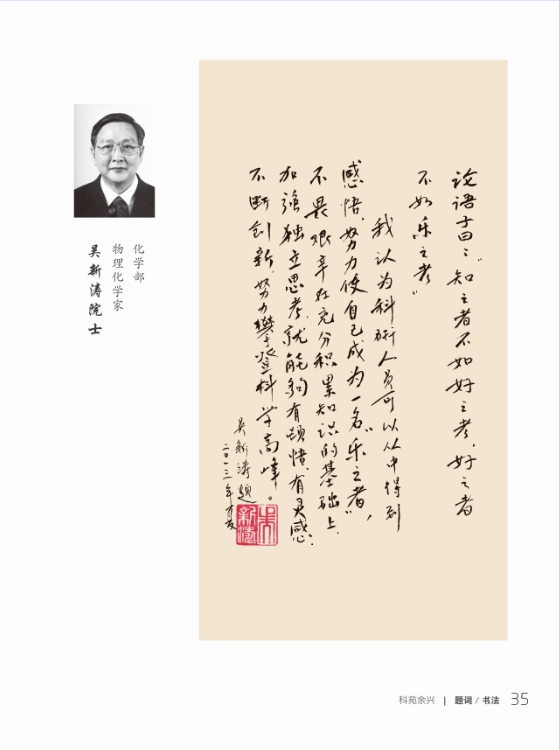 化学部
物理化学家
吴新涛院士
论语子曰："知之者不如好之者，好之者
不如乐之者"
我认为科研人员可以从中得到
感悟，努力使自己成为一名"乐之者"，
不畏艰辛在充分积累知识的基础上，
加强独立思考，就能够有顿悟、有灵感；
不断创新，努力攀登科学高峰。
吴新涛题
二〇一三年
吴
新涛
科苑余兴 | 题词 / 书法 35